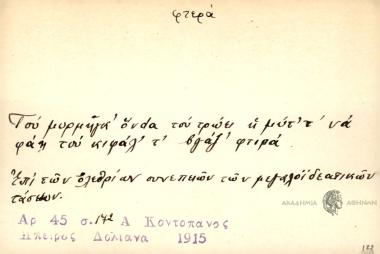 φτερά
Τοὺ μυρμήγκ' ὅνdα τοὺ τρώει ἡ μύτ' τ' νὰ
φάῃ τοὺ κιφάλ' τ' βγάζ' φτιρά.
Ἐπὶ τῶν ὀλεθρίων συνεπειῶν τῶν μεγαλοϊδεατικῶν
τάσεων.
Αρ 45 σ. 142 Α Κοντοπανος
Ηπειρος Δολιανα 1915
ΑΚΑΔΗΜΙΑ ΑΘΗΝΩΝ